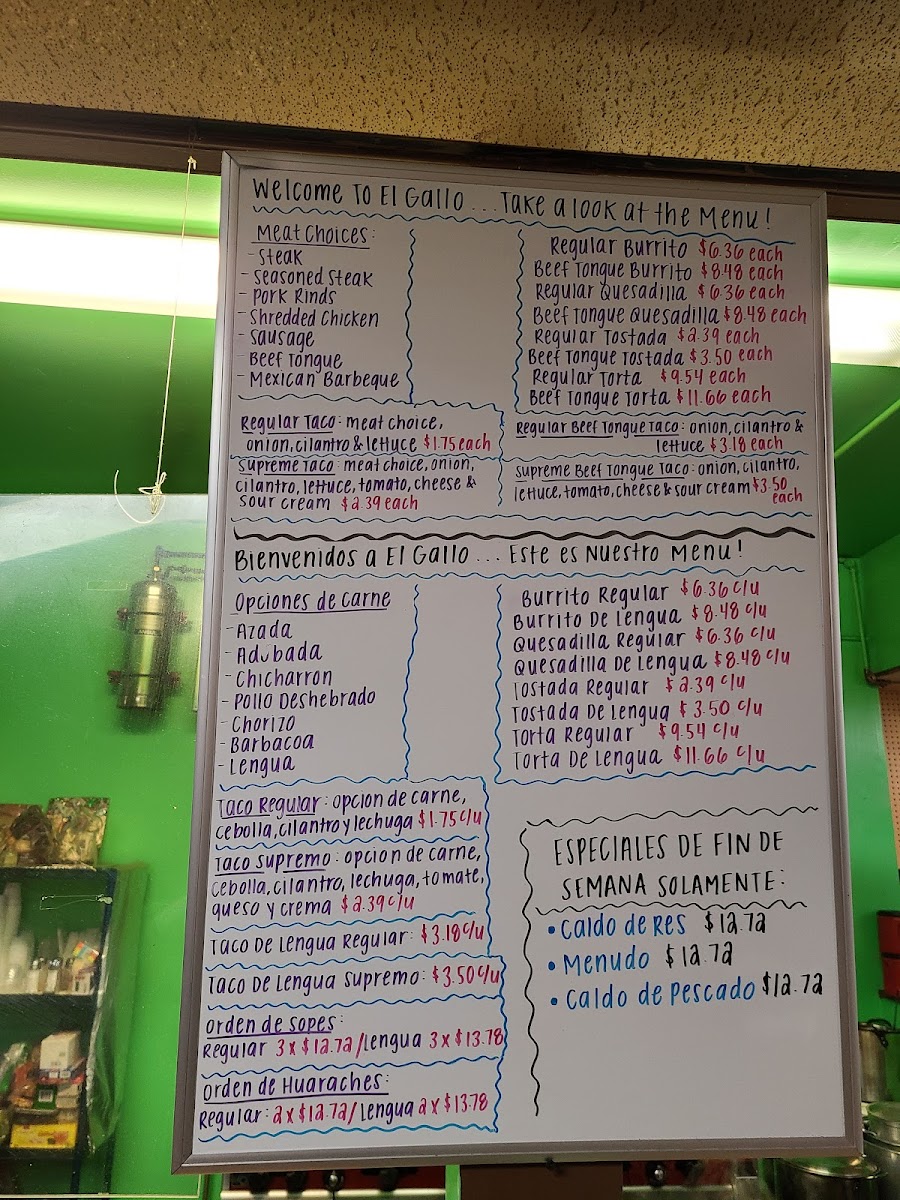 Welcome To El Gallo ... Take a look at the Menu!
Meat Choices:
- Steak
- Seasoned Steak
- Pork Rinds
- Shredded Chicken
- Sausage
- Beef Tongue
- Mexican Barbeque
Regular Burrito $6.36 each
Beef Tongue Burrito $8.48 each
Regular Quesadilla $6.36 each
Beef Tongue Quesadilla $8.48 each
Regular Tostada $2.39 each
Beef Tongue Tostada $3.50 each
Regular Torta $9.54 each
Beef Tongue Torta $11.66 each
Regular Taco: meat choice,
onion, cilantro & lettuce $1.75 each
Supreme Taco: meat choice, onion,
cilantro, lettuce, tomato, cheese &
sour cream $2.39 each
Regular Beef Tongue Taco: onion, cilantro &
lettuce $3.18 each
Supreme Beef Tongue Taco: onion, cilantro,
lettuce, tomato, cheese & sour cream $3.50
each
Bienvenidos a El Gallo ... Este es Nuestro Menu!
Opciones de Carne
- Azada
- Adubada
- Chicharron
- Pollo Deshebrado
- Chorizo
- Barbacoa
- Lengua
Burrito Regular $6.36 c/u
Burrito De Lengua $8.48 c/u
Quesadilla Regular $6.36 c/u
Quesadilla De Lengua $8.48 c/u
Tostada Regular $2.39 c/u
Tostada De Lengua $3.50 c/u
Torta Regular $9.54 c/u
Torta De Lengua $11.66 c/u
Taco Regular: opcion de carne,
cebolla, cilantro y lechuga $1.75 c/u
Taco Supremo: opcion de carne,
cebolla, cilantro, lechuga, tomate,
queso y crema $2.39 c/u
Taco De Lengua Regular: $3.18 c/u
Taco De Lengua Supremo: $3.50 c/u
Orden de Sopes:
Regular 3x$12.72/Lengua 3x$13.78
Orden de Huaraches:
Regular: 2x$12.72/Lengua 2x$13.78
ESPECIALES DE FIN DE
SEMANA SOLAMENTE:
• Caldo de Res $12.72
• Menudo $12.72
• Caldo de Pescado $12.72